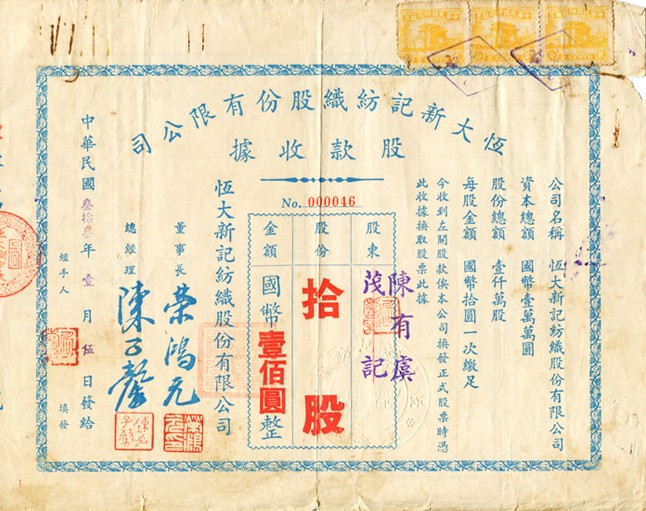 恆大新記紡織股份有限公司
股款收據
No. 000046
公司名稱 恆大新記紡織股份有限公司
資本總額 國幣壹萬萬圓
股份總額 壹仟萬股
每股金額 國幣拾圓一次繳足
今收到左開股款俟本公司換發正式股票時憑
此收據換取股票此據
股東 陳有虞 茂記
股份 拾股
金額 國幣壹佰圓整
恆大新記紡織股份有限公司
董事長 榮鴻元
總經理 陳子馨
中華民國叁拾叁年壹月伍日發給
經手人 填發